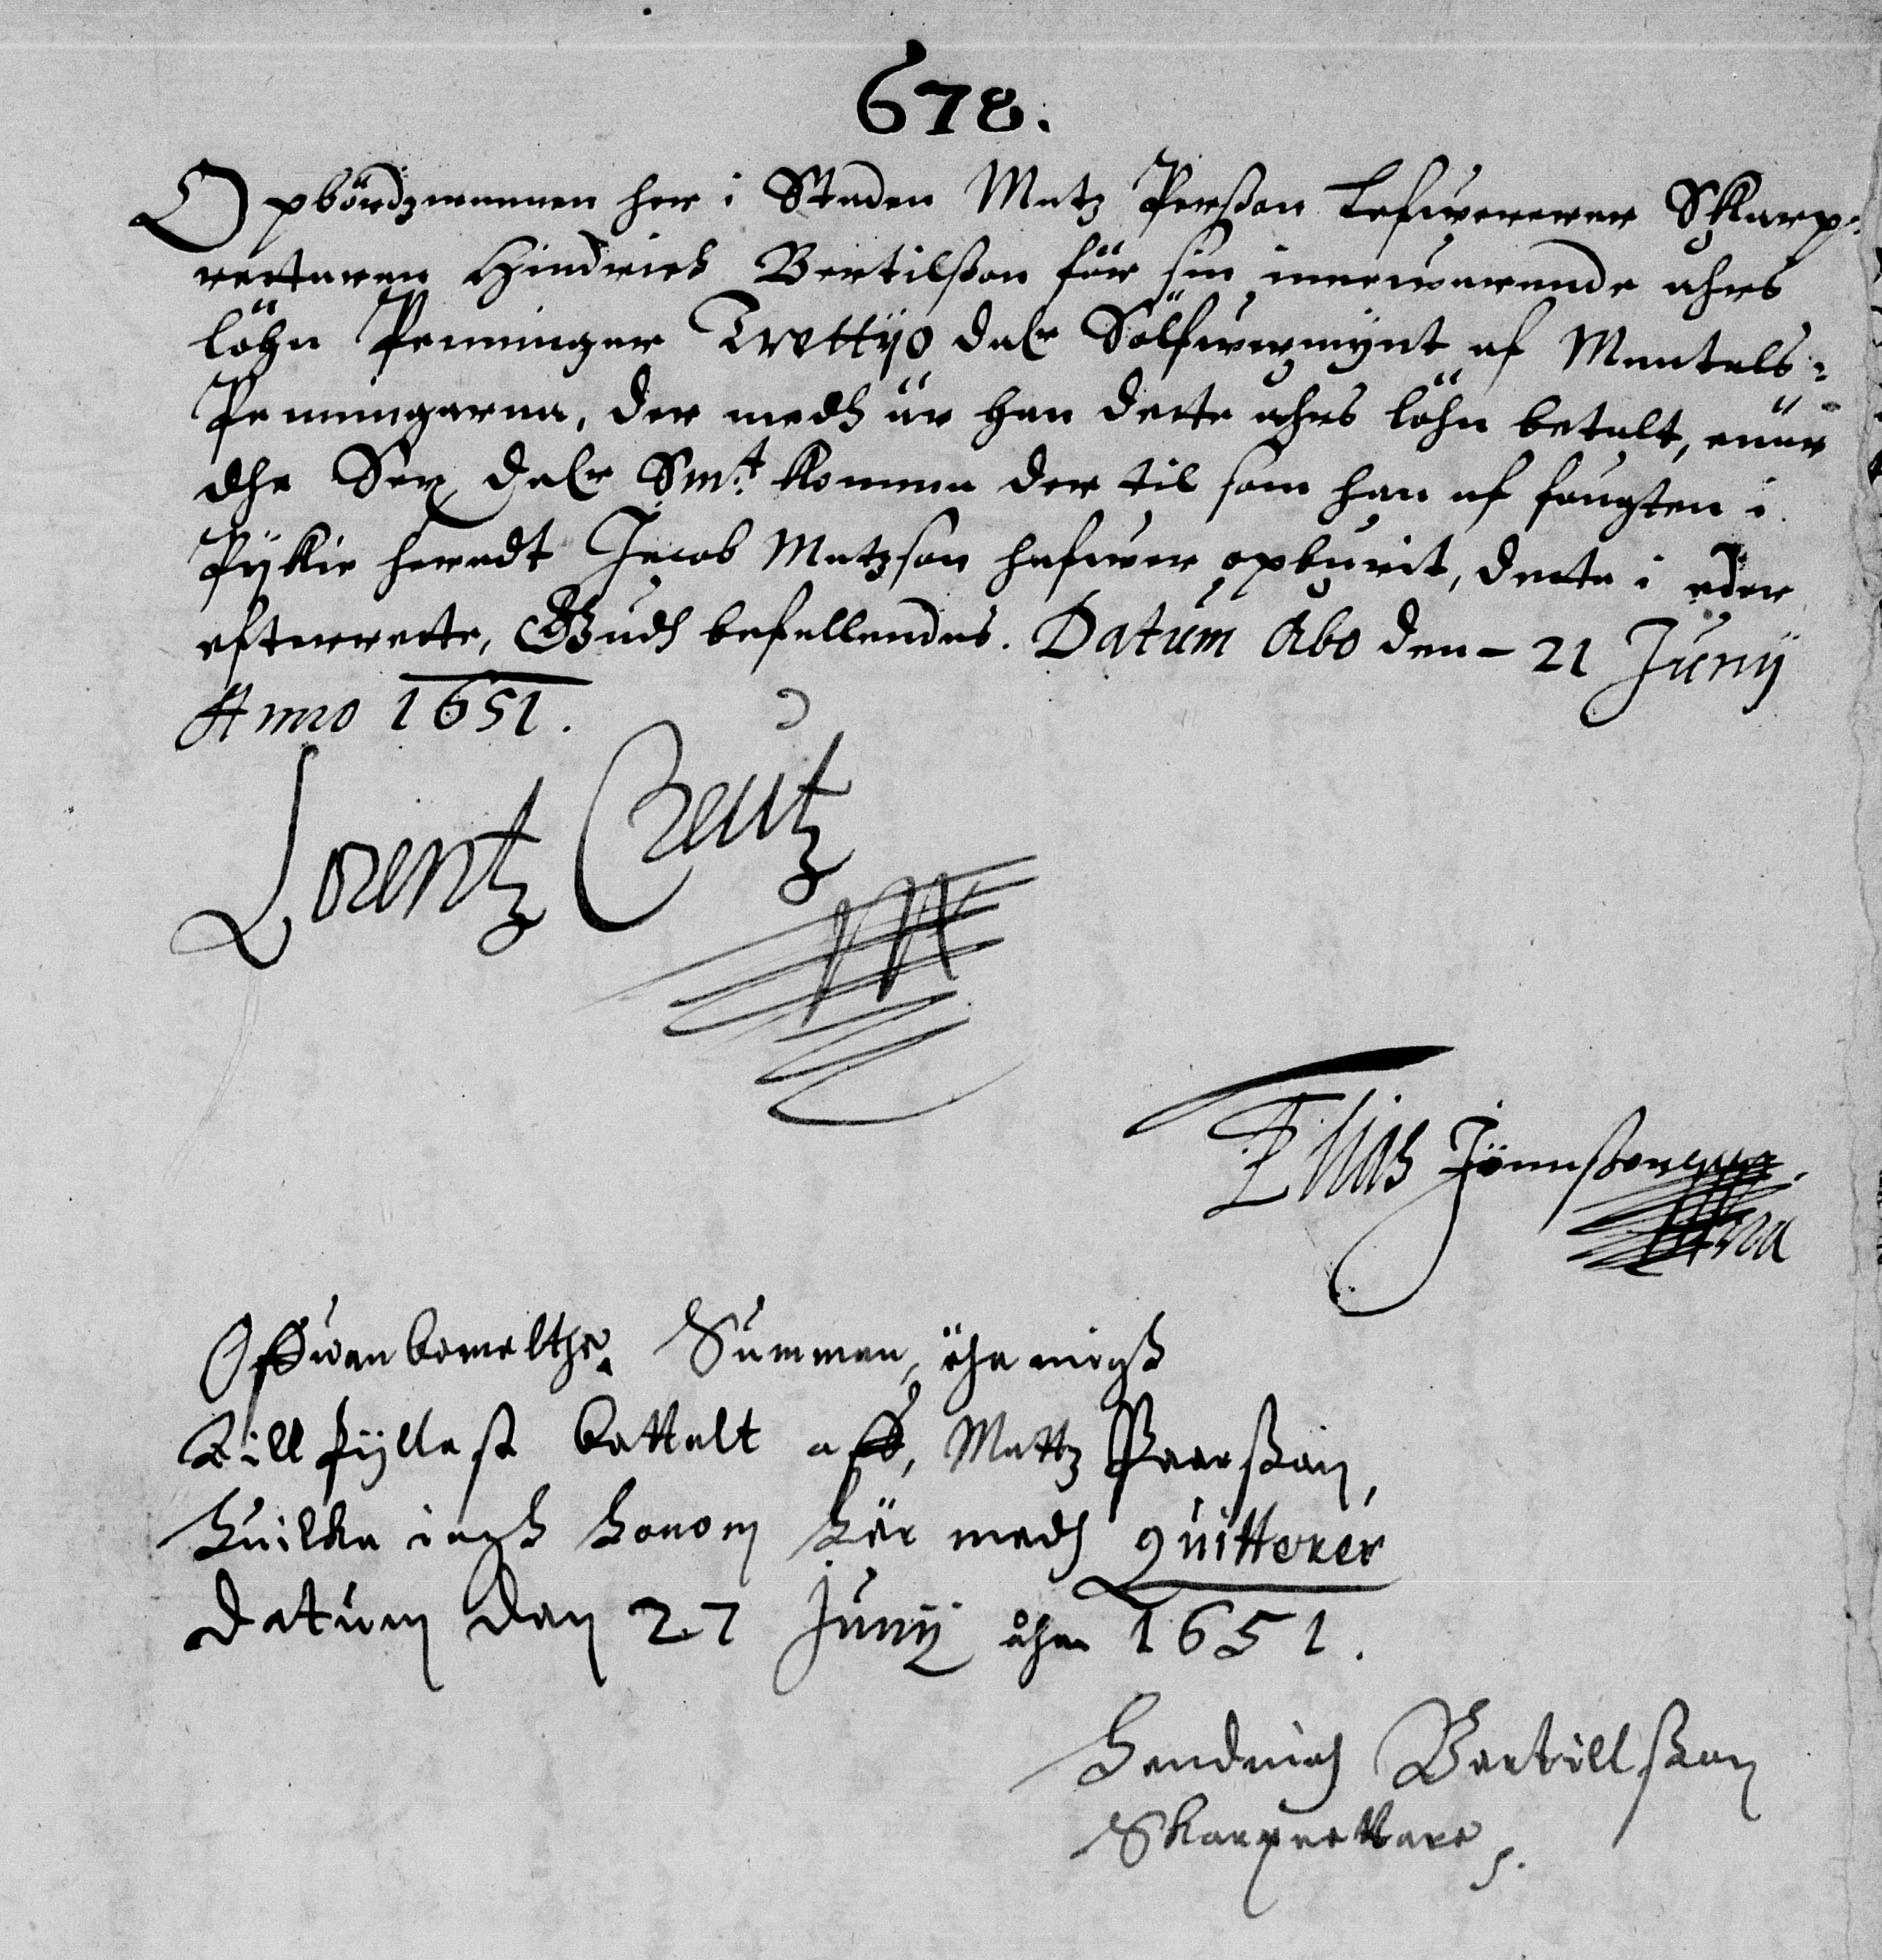 678.
Opbördzmannen her i Staden Matz Perßon Lefwererer Skarp:
rettaren Hindrich Bertilßon för sin innewarande ahrs
löhn Penningar Trettijo dalr Sölfwermynt af Mantals:
Penningarna, der medh är han dette ahrs löhn betalt, enär
dhe Sex dalr Smt komma der til som han af fougten i
Pijkie heradt Jacob Matzson hafwer opburit, dette i eder
efterrette, Gudh befallendes. Datum Åbo den 21 Junij
Anno 1651.
Lorentz Creutz
Elias Jönnßon
Offwanbemelthe Summan, ähr migh
till fyllest bettalt aff, Mattz Peerßon,
huilka iagh honom här medh quitterer
datum den 27 Junij åhr 1651.
Hendrich Bertillßon
Skarprettare